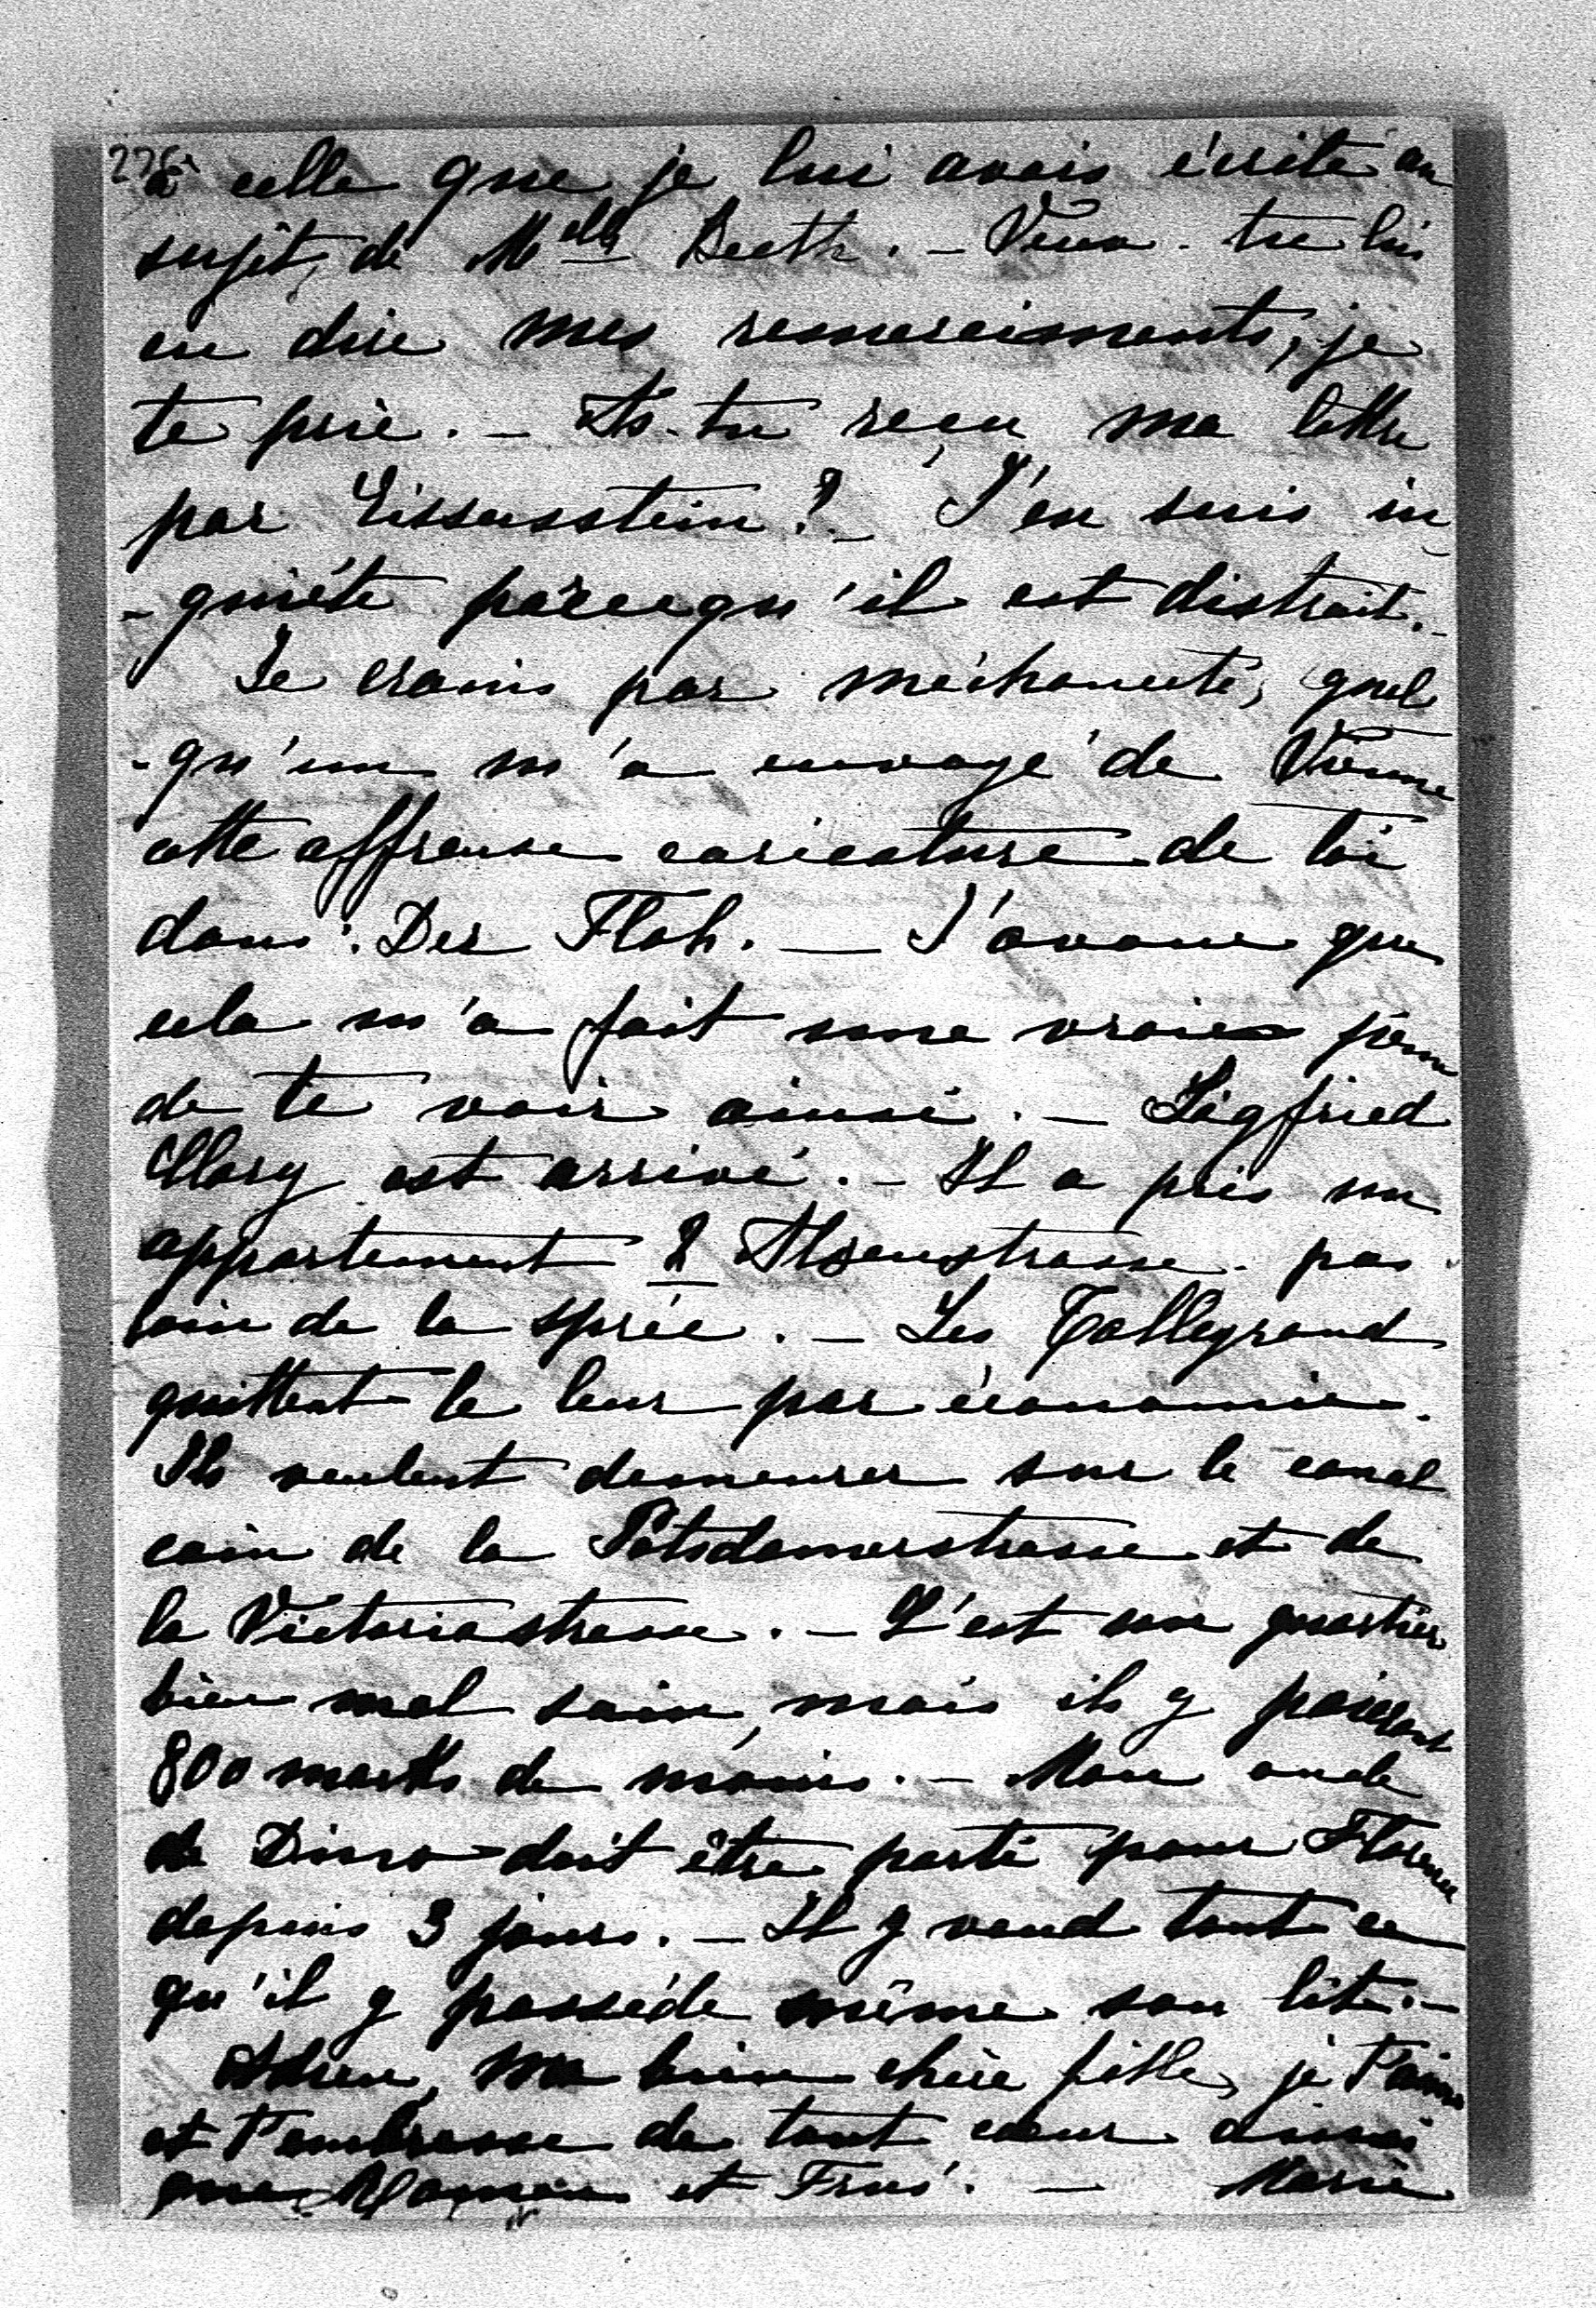 226
à celle que je lui avais écrite au
sujet de Melle Beeth. – Veux-tu lui
en dire mes remerciments, je
te prie. – As-tu reçu ma lettre
par ? – J'en suis in
-quiète parcequ'il est distrait. –
Je crains par méchanceté, quel
-qu'un m'a envoyé de Vienne
cette affreuse caricature de toi
dans: Der Floh. – J'avoue que
cela m'a fait une vraie peine
de te voir ainsi. – Sigfried
Clary est arrivé. – Il a pris un
appartement 2 Alsenstrasse pas
loin de la Sprée. – Les Talleyrand
quittent le leur par économie.
Ils veulent demeurer sur le canal
coin de la Potsdamerstrasse et de
la Victoriastrasse. – C'est un quartier
bien mal sain, mais ils y paieront
800 marks de moins. – Mon oncle
de Dino doit être parti pour Florence
depuis 3 jours. – Il y vend tout ce
qu'il y possède même son lit. –
Adieu, ma bien chère fille, je t'aime
et t'embrasse de tout cœur ainsi
que et – Marie